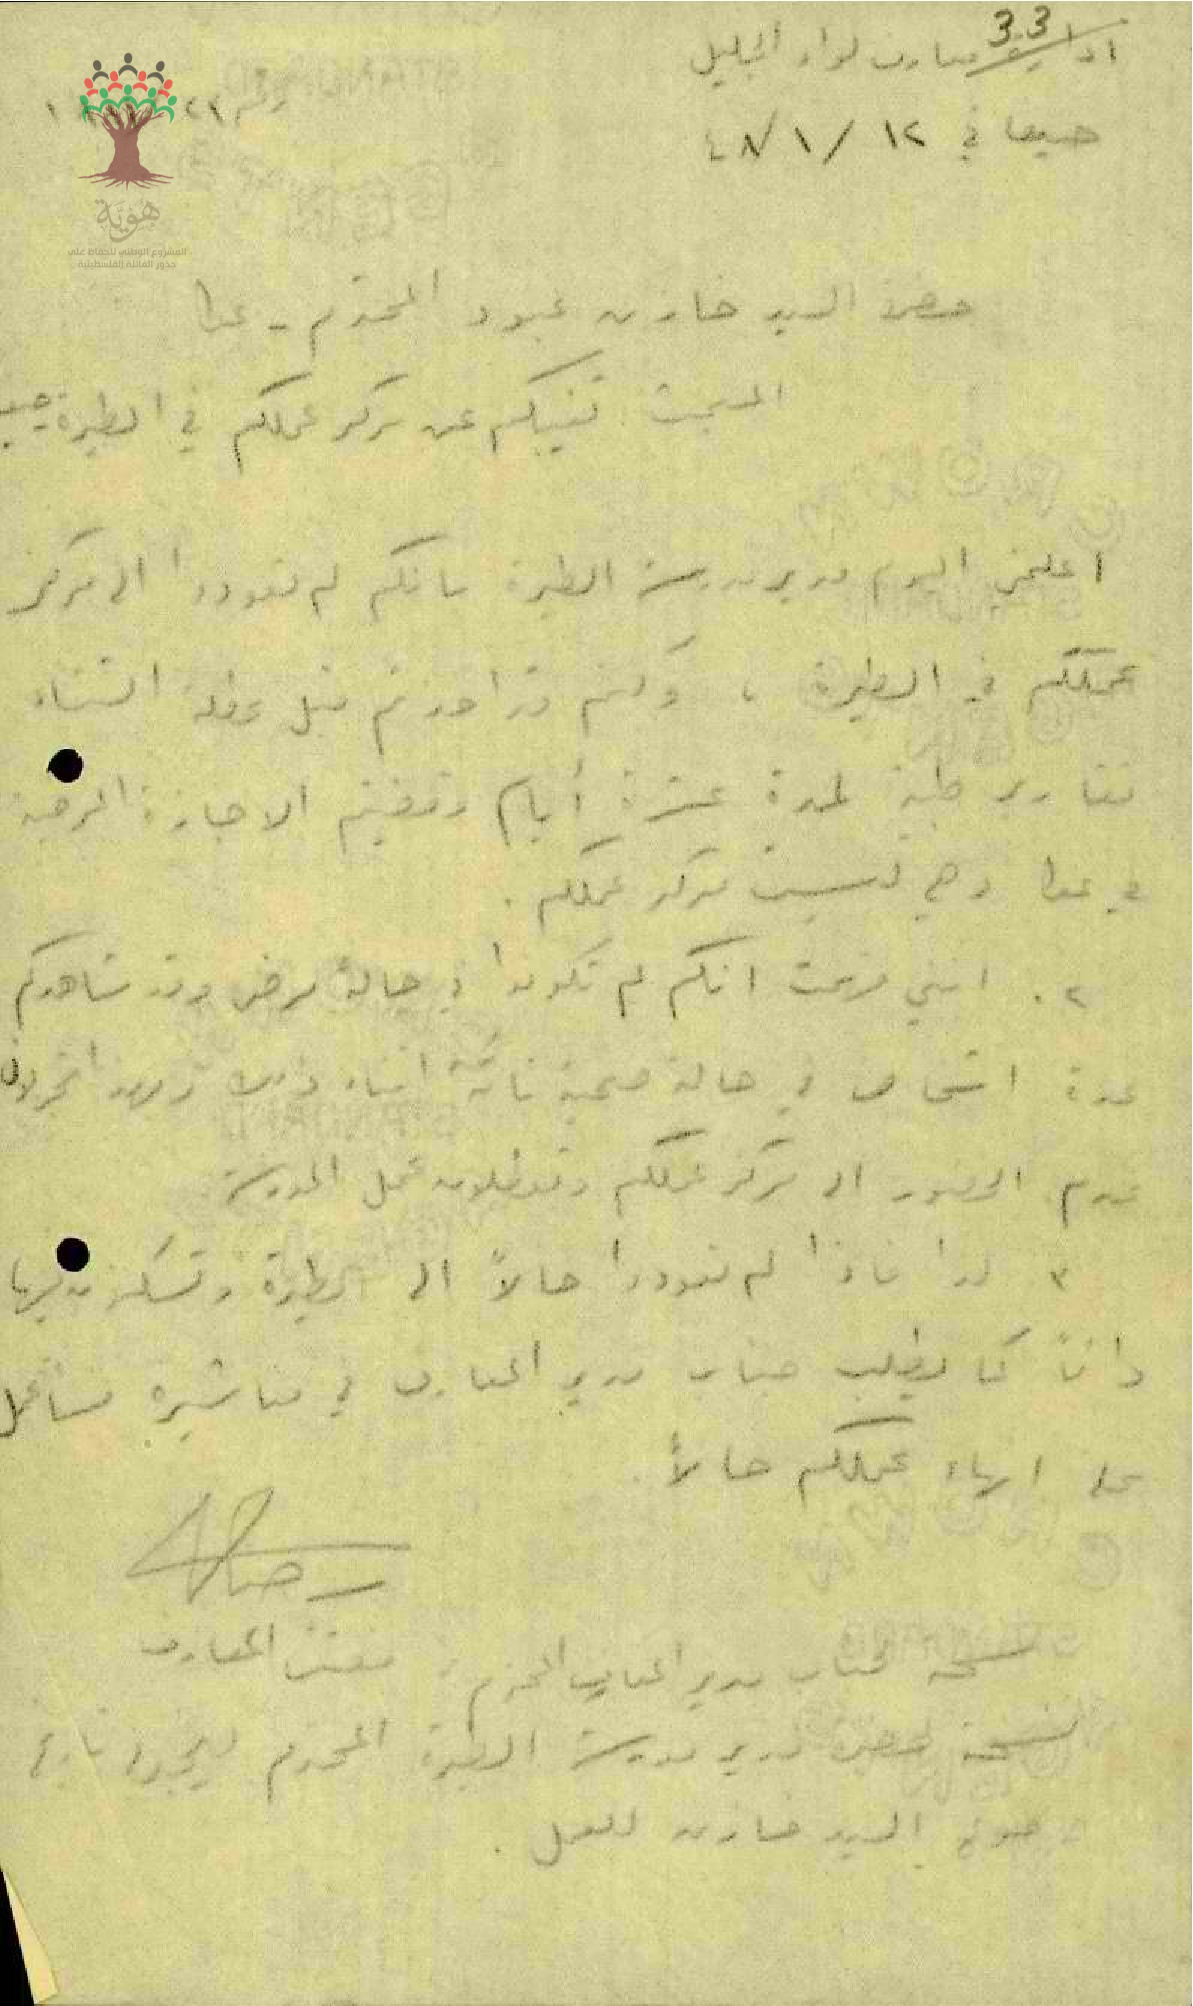 33
ادارة معارف لواء الجليل
رقم
حيفا في ١٢ / ١ / ٤٨
هوية
المشروع الوطني للحفاظ على
جذور العائلة الفلسطينية
حضرة السيد خازن عبود المحترم - عكا
المبحث تغيبكم عن مركز عملكم في الطيرة
اعلمني اليوم مدير مدرسة الطيرة بانكم لم تعودوا الى مركز
عملكم في الطيرة ، وكنتم قد اخذتم قبل عطلة الشتاء
تقارير طبية لمدة عشرة أيام وقضيتم الاجازة المرضية
في عكا وهي ليست مركز عملكم .
٢ . انني فهمت انكم لم تكونوا في حالة مرض وقد شاهدكم
عدة اشخاص في حالة صحية تامة اثناء
عدم الحضور الى مركز عملكم وتعطلون عمل المدرسة
٣ لذا فاذا لم تعودوا حالاً الى الطيرة وتسكنون فيها
دائماً كما يطلب جناب مدير المعارف في مناشيره سأعمل
على انهاء عملكم حالاً .
مفتش المعارف
نسخة لجناب مدير المعارف المحترم
نسخة لحضرة مدير مدرسة الطيرة المحترم ليخبرنا تاريخ
السيد خازن للعمل .